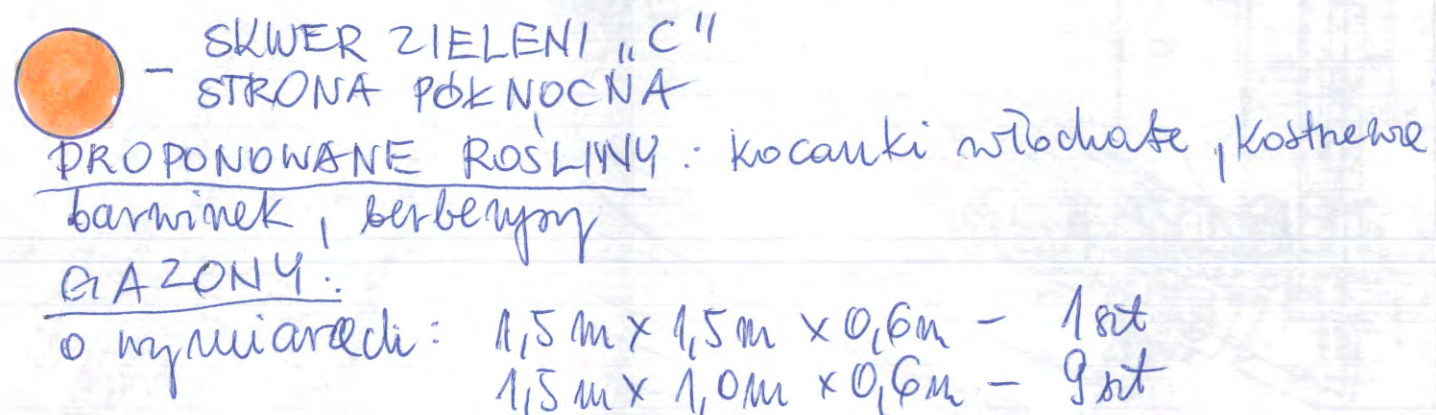 - SKWER ZIELENI „C"
STRONA PÓŁNOCNA
PROPONOWANE ROŚLINY: kocanki włochate, kostrzewa
barwinek, berberysy
GAZONY:
o wymiarach: 1,5 m x 1,5 m x 0,6 m - 1 szt
1,5 m x 1,0 m x 0,6 m - 9 szt